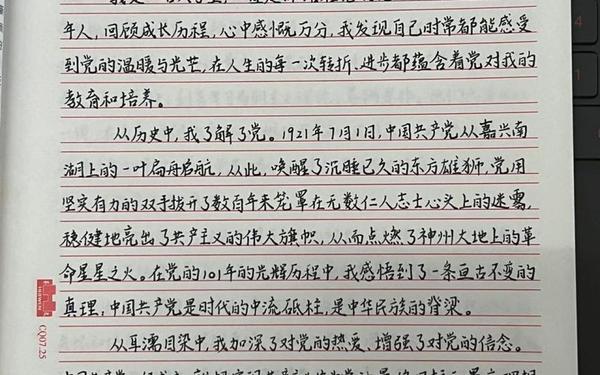 年人，回顾成长历程，心中感慨万分，我发现自己时常都能感受
到党的温暖与光芒，在人生的每一次转折、进步都蕴含着党对我的
教育和培养。
从历史中，我了解了党。1921年7月1日，中国共产党从嘉兴南
湖上的一叶扁舟启航，从此，唤醒了沉睡已久的东方雄狮，党用
坚实有力的双手拨开了数百年来笼罩在无数仁人志士心头上的迷雾，
稳健地亮出了共产主义的伟大旗帜，从而点燃了神州大地上的革
命星星之火。在党的101年的光辉历程中，我感悟到了一条亘古不变的
真理，中国共产党是时代的中流砥柱，是中华民族的脊梁。
从耳濡目染中，我加深了对党的热爱、增强了对党的信念。
CQ07.25